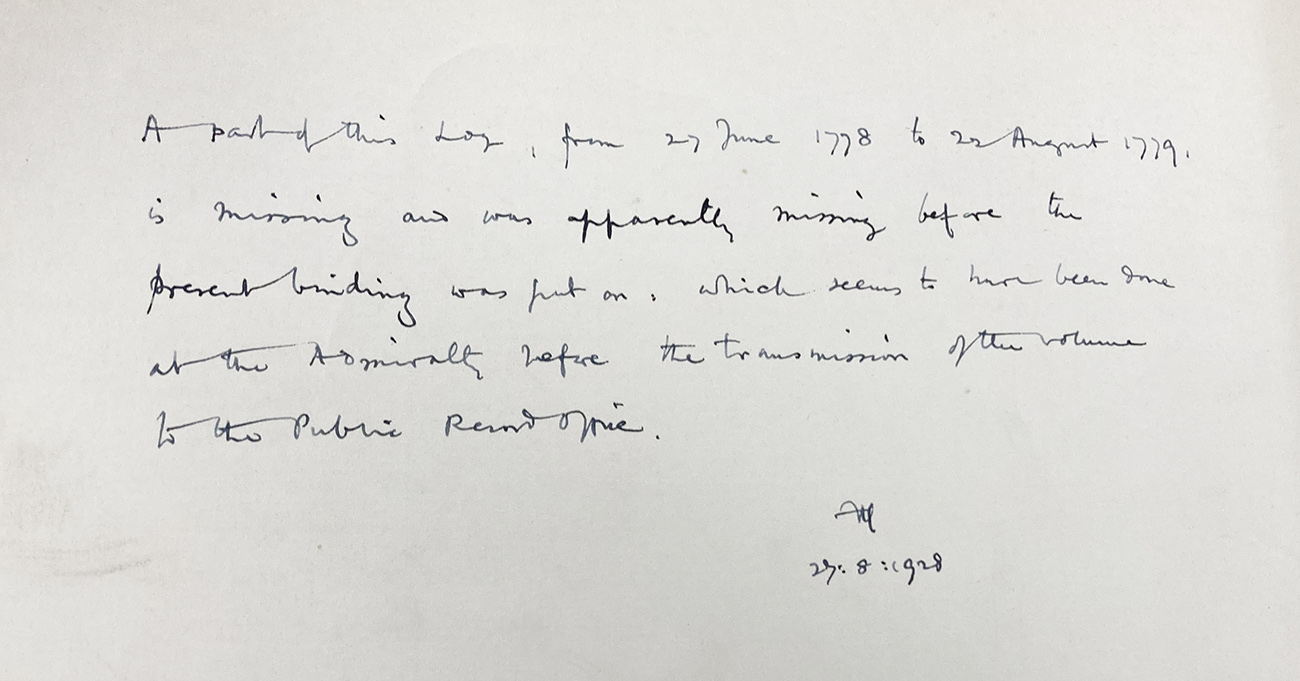 A part of this Log, from 27 June 1778 to 22 August 1779,
is missing and was apparently missing before the
present binding was put on: which seems to have been done
at the Admiralty before the transmission of the volume
to the Public Record Office.
29: 8: 1928